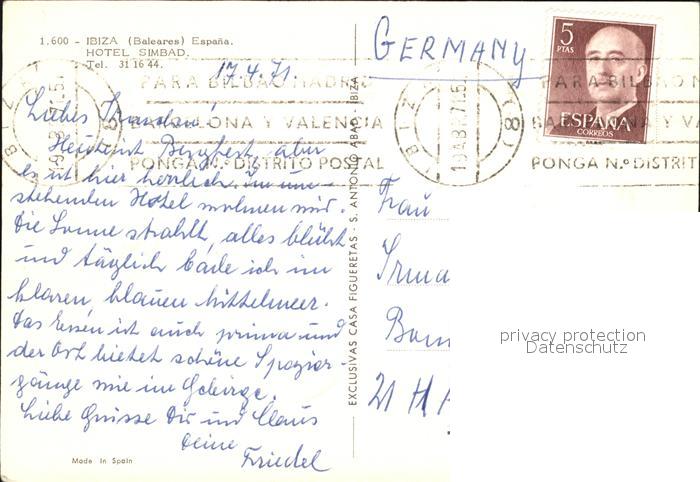 1.600 - IBIZA (Baleares) España.
HOTEL SIMBAD.
Tel. 31 16 44.
17.4.71.
Liebes
aber
es ist hier herrlich. In um-
stehendem Hotel wohnen wir.
Die Sonne strahlt, alles blüht
und täglich bade ich im
klaren, blauen Mittelmeer.
Das Essen ist auch prima und
der Ort bietet schöne Spazier-
gänge wie im Gebirge.
Liebe Grüsse Dir und Claus
Deine
Friedel
Made in Spain
EXCLUSIVAS CASA FIGUERETAS - S. ANTONIO ABAD - IBIZA
GERMANY
5
PTAS
ESPAÑA
CORREOS
PARA BILBAO MADRID
BARCELONA Y VALENCIA
PONGA N.º DISTRITO POSTAL
IBIZA
PARA BILBAO
PONGA N.º DISTRIT
Frau
Irma
21 HA
privacy protection
Datenschutz